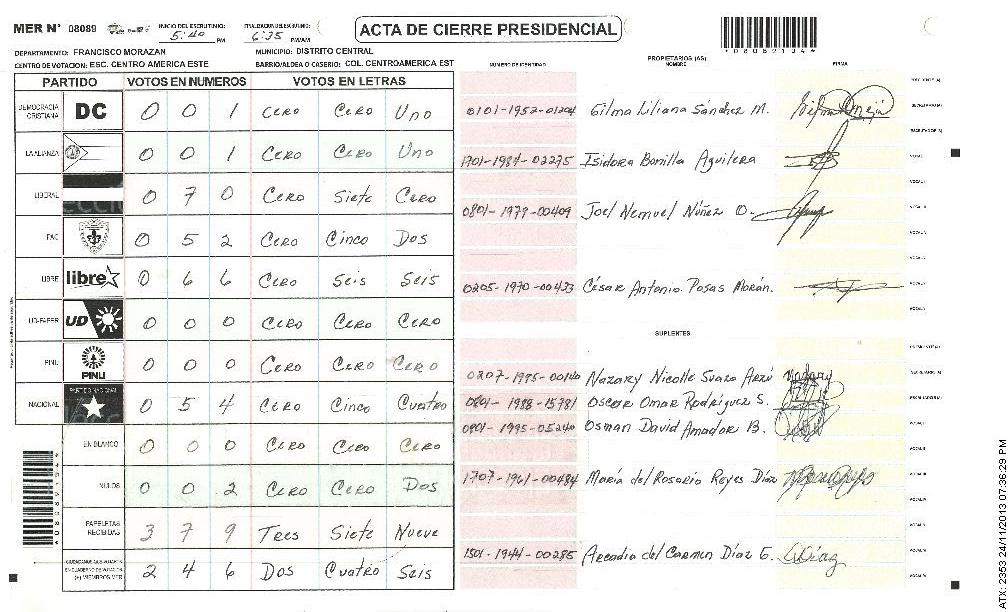 MER N° 08089
INICIO DEL ESCRUTINIO: 5:40 PM
FINALIZACION DEL ESCRUTINIO: 6:35 PM/AM
ACTA DE CIERRE PRESIDENCIAL
DEPARTAMENTO: FRANCISCO MORAZAN
MUNICIPIO: DISTRITO CENTRAL
CENTRO DE VOTACION: ESC. CENTRO AMERICA ESTE
BARRIO/ALDEA O CASERIO: COL. CENTROAMERICA EST
PARTIDO VOTOS EN NUMEROS VOTOS EN LETRAS
DEMOCRACIA CRISTIANA DC 0 0 1 CERO CERO Uno
LA ALIANZA 0 0 1 CERO CERO Uno
LIBERAL 0 7 0 CERO Siete CERO
PAC 0 5 2 CERO Cinco Dos
LIBRE libre 0 6 6 CERO Seis Seis
UD-FAPER UD 0 0 0 CERO CERO CERO
PINU PINU 0 0 0 CERO CERO CERO
NACIONAL PARTIDO NACIONAL 0 5 4 CERO Cinco Cuatro
EN BLANCO 0 0 0 CERO CERO CERO
NULOS 0 0 2 CERO CERO Dos
PAPELETAS RECIBIDAS 3 7 9 Tres Siete Nueve
CIUDADANOS QUE VOTARON EN CUADERNO DE VOTACION (+) MIEMBROS MER 2 4 6 Dos Cuatro Seis
NUMERO DE IDENTIDAD
PROPIETARIOS (AS)
NOMBRE
FIRMA
0101-1952-01204 Gilma Liliana Sánchez M.
1701-1987-02275 Isidora Bonilla Aguilera
0801-1979-00409 Joel Nemuel Núñez O.
0205-1970-00423 César Antonio Posas Morán.
SUPLENTES
0207-1995-00140 Nazary Nicolle Suazo Arzú
0801-1988-15781 Oscar Omar Rodríguez S.
0801-1995-05240 Osman David Amador B.
1707-1961-00484 María del Rosario Reyes Díaz
1501-1944-00285 Arcadia del Carmen Díaz E.
ATX: 2353 24/11/2013 07:36:29 PM